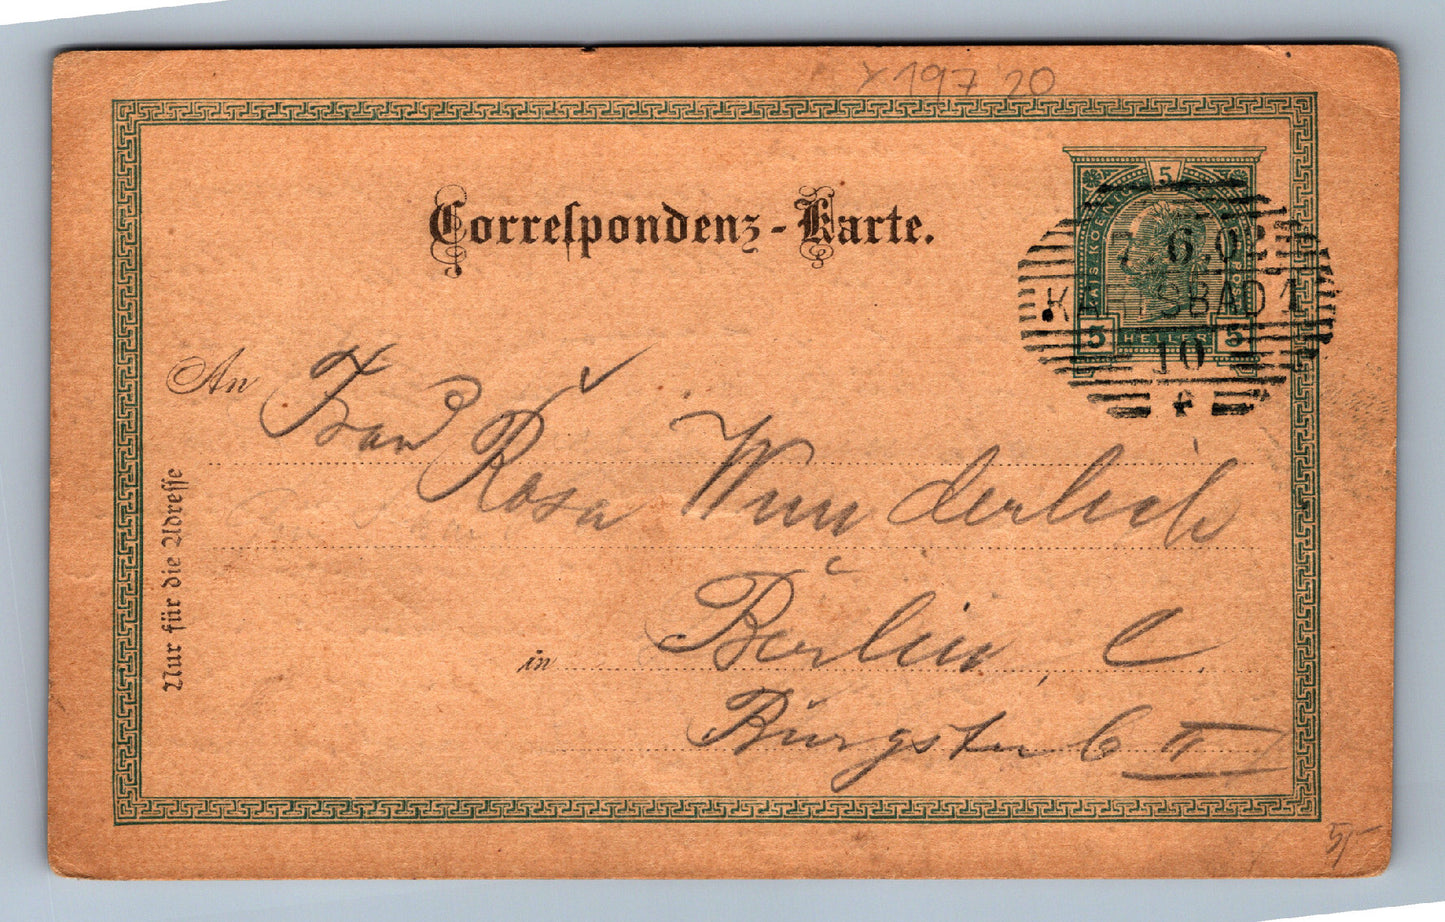 x 197 20
Correspondenz-Karte.
5
7.6.02
KARLSBAD 1
5 HELLER 5
10
An Frau
Rosa Wunderlich
in Berlin, C.
Burgstr 6 II
Nur für die Adresse
5/-